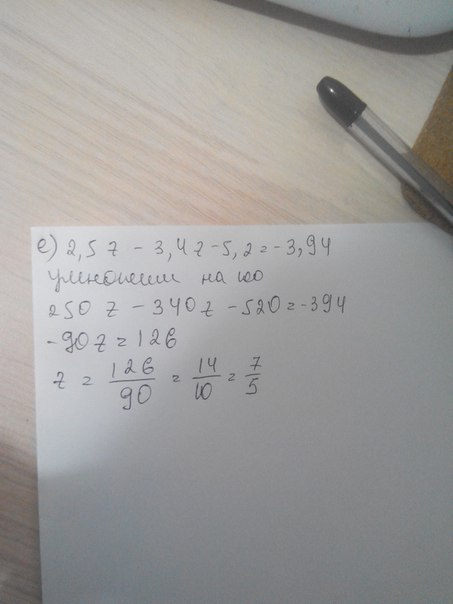 е) 2,5z - 3,4z - 5,2 = -3,94
умножим на 100
250z - 340z - 520 = -394
-90z = 126
z = 126/90 = 14/10 = 7/5